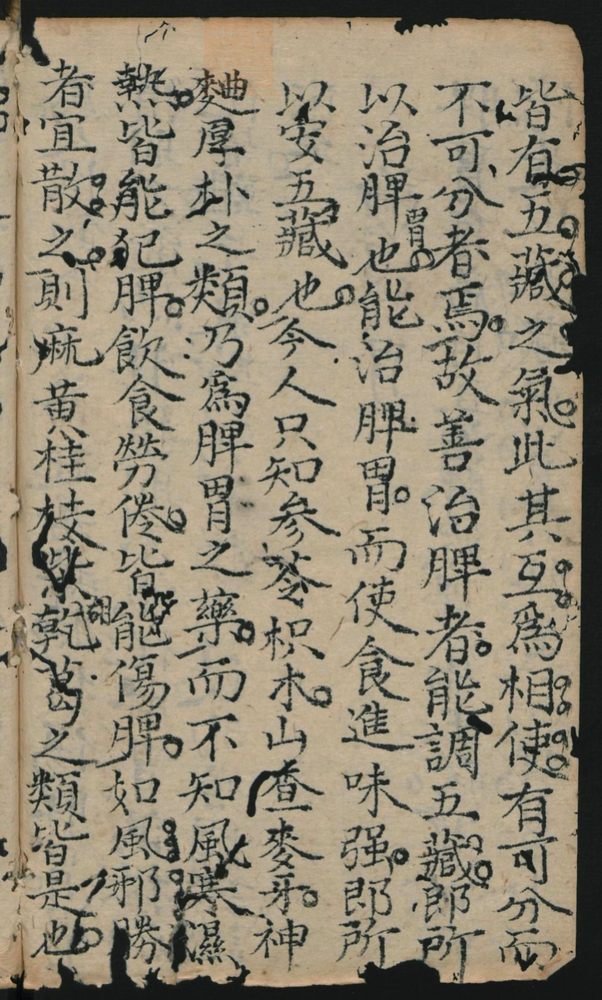 皆有五藏之氣此其互為相使有可分而
不可分者焉故善治脾者能調五藏郎所
以治脾胃也能治脾胃而使食進味强郎所
以安五藏也今人只知參苓枳朮山查麥牙神
麯厚朴之類乃為脾胃之藥而不知風寒濕
熱皆能犯脾飲食勞倦皆能傷脾如風邪勝
者宜散之則麻黄桂枝柴胡乾葛之類皆是也